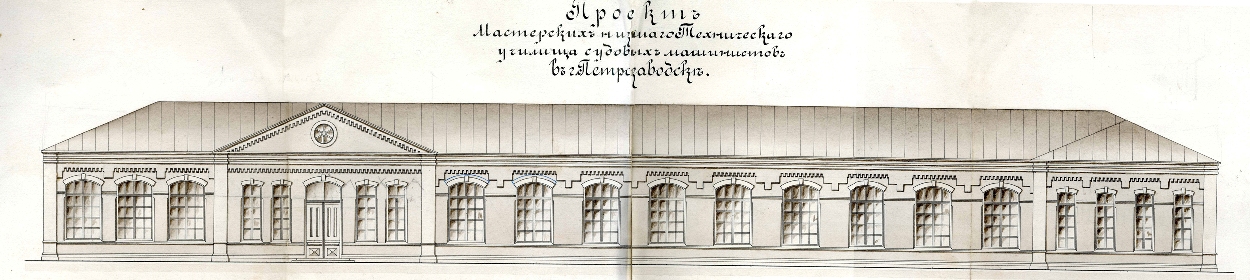 Проектъ
Мастерскихъ низшаго Техническаго
училища судовыхъ машинистовъ
въ г. Петрозаводскѣ.